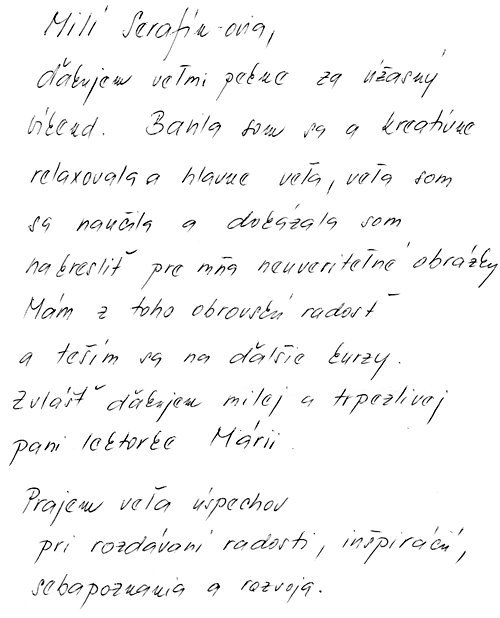 Milí Serafín-ovia,
ďakujem veľmi pekne za úžasný
víkend. Bavila som sa a kreatívne
relaxovala a hlavne veľa, veľa som
sa naučila a dokázala som
nakresliť pre mňa neuveriteľné obrázky
Mám z toho obrovskú radosť
a teším sa na ďalšie kurzy.
Zvlášť ďakujem milej a trpezlivej
pani lektorke Márii.
Prajem veľa úspechov
pri rozdávaní radosti, inšpirácií,
sebapoznania a rozvoja.